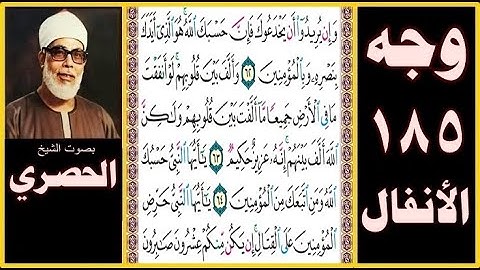 وجه
١٨٥
الأنفال
وَإِن يُرِيدُوٓا۟ أَن يَخْدَعُوكَ فَإِنَّ حَسْبَكَ ٱللَّهُ ۚ هُوَ ٱلَّذِىٓ أَيَّدَكَ
بِنَصْرِهِۦ وَبِٱلْمُؤْمِنِينَ ٦٢ وَأَلَّفَ بَيْنَ قُلُوبِهِمْ ۚ لَوْ أَنفَقْتَ
مَا فِى ٱلْأَرْضِ جَمِيعًا مَّآ أَلَّفْتَ بَيْنَ قُلُوبِهِمْ وَلَٰكِنَّ
ٱللَّهَ أَلَّفَ بَيْنَهُمْ ۚ إِنَّهُۥ عَزِيزٌ حَكِيمٌ ٦٣ يَٰٓأَيُّهَا ٱلنَّبِىُّ حَسْبُكَ
ٱللَّهُ وَمَنِ ٱتَّبَعَكَ مِنَ ٱلْمُؤْمِنِينَ ٦٤ يَٰٓأَيُّهَا ٱلنَّبِىُّ حَرِّضِ
ٱلْمُؤْمِنِينَ عَلَى ٱلْقِتَالِ ۚ إِن يَكُن مِّنكُمْ عِشْرُونَ صَٰبِرُونَ
بصوت الشيخ
الحصري